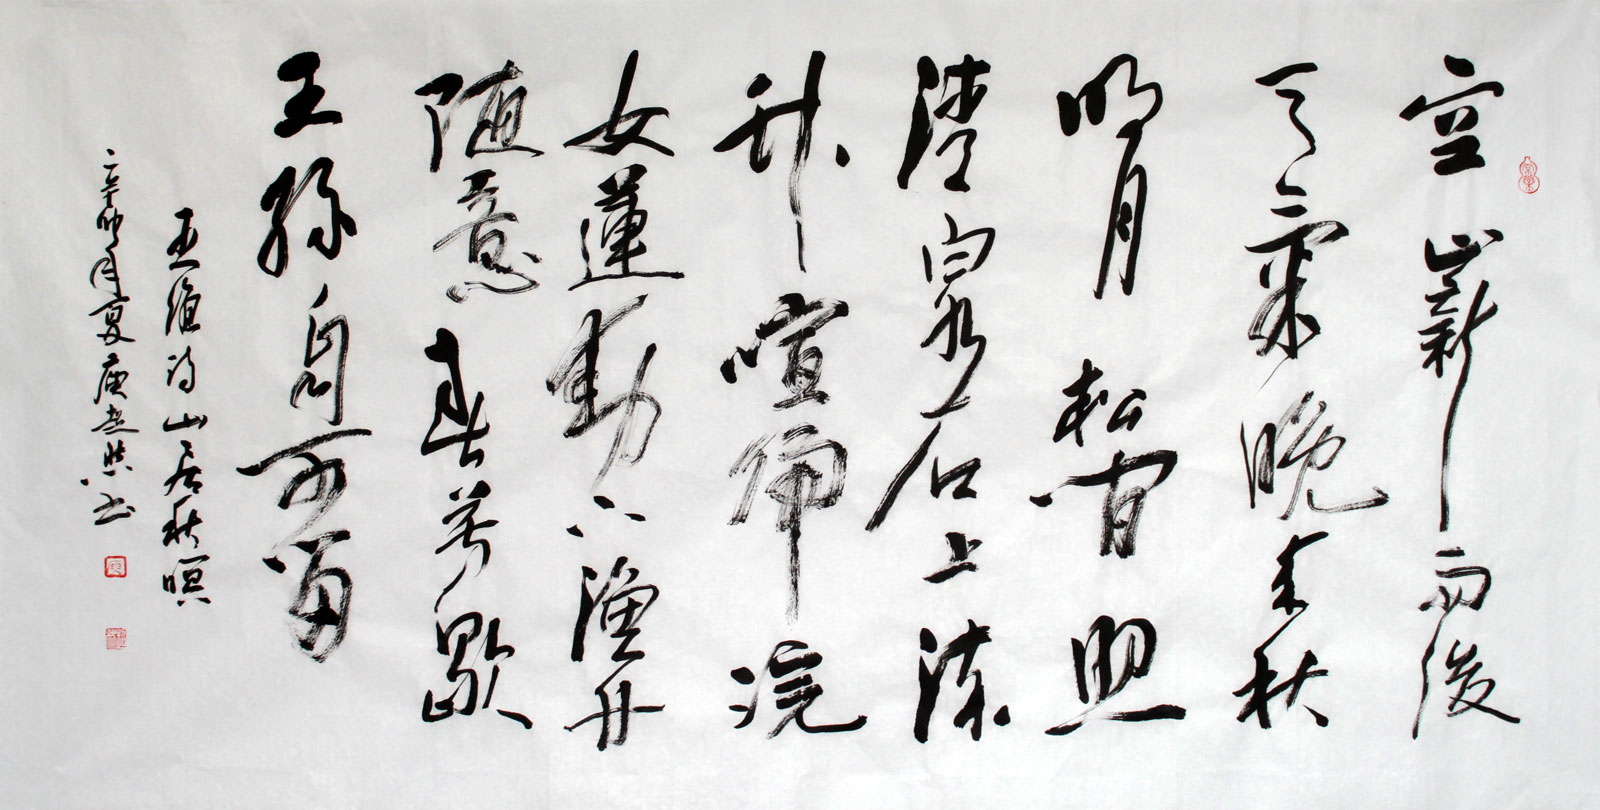 空山新雨後
天氣晚来秋
明月松間照
清泉石上流
竹喧歸浣
女蓮動下漁舟
随意春芳歇
王孫自可留
王維詩山居秋暝
辛卯年夏书